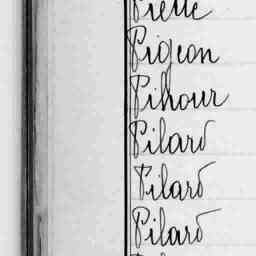 Piette
Pigeon
Pihour
Pilard
Pilard
Pilard